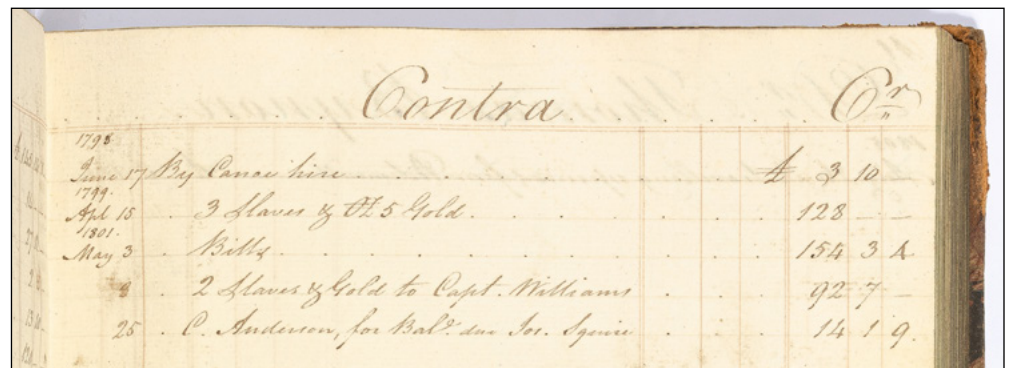 Contra Cr
1798
June 17 By Canoe hire £ 3 10
1799.
Apl 15 3 Slaves & Oz 5 Gold 128 – –
1801.
May 3 Bills 154 3 4
8 2 Slaves & Gold to Capt. Williams 92 7 –
25 C. Anderson, for Bale. due Jos. Squire 14 1 9